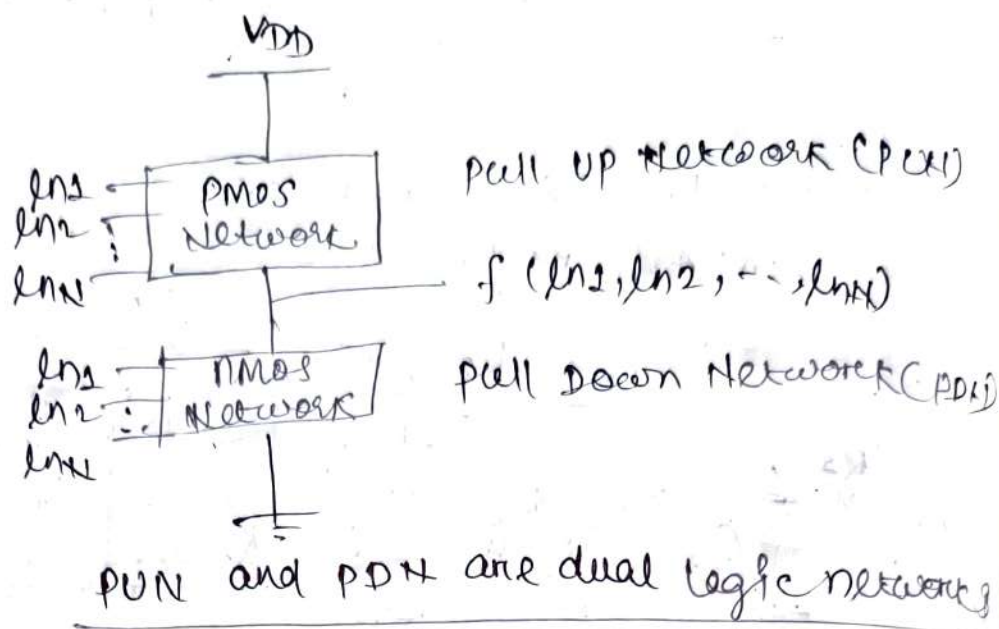 VDD
In1
In2
InN
PMOS
Network
Pull Up Network (PUN)
f (In1, In2, --, InN)
In1
In2
InN
NMOS
Network
Pull Down Network (PDN)
PUN and PDN are dual logic networks